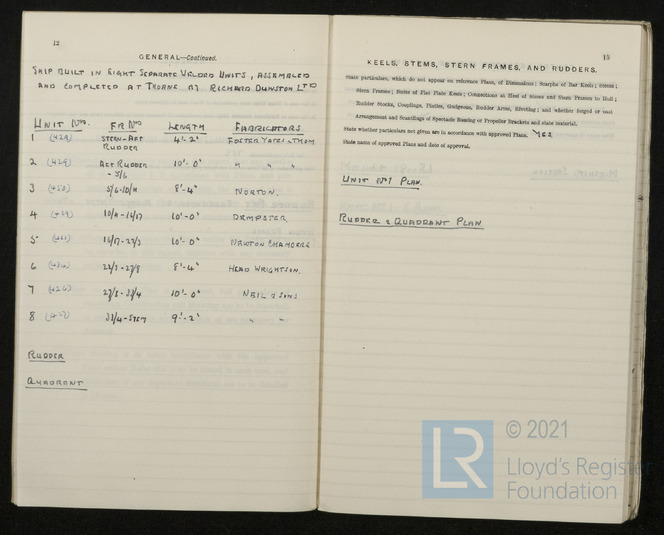 12
GENERAL—Continued.
SHIP BUILT IN EIGHT SEPARATE WELDED UNITS, ASSEMBLED
AND COMPLETED AT THORNE BY RICHARD DUNSTON LTD
UNIT NOS. FR NOS LENGTH FABRICATORS
1 (424) STERN-AFT RUDDER 4'-2" FOSTER YATES & THOM
2 (429) AFT RUDDER - 5/6 10'-0" " " "
3 5/6-10/11 8'-4" NORTON.
4 10/11-16/17 10'-0" DEMPSTER
5 16/17-22/3 10'-0" NEWTON CHAMBERS
6 22/3-27/8 8'-4" HEAD WRIGHTSON.
7 (426) 27/8-33/4 10'-0" NEIL & SONS
8 33/4-STEM 9'-2" " "
RUDDER
QUADRANT
13
KEELS, STEMS, STERN FRAMES, AND RUDDERS.
State particulars, which do not appear on reference Plans, of Dimensions; Scarphs of Bar Keels; Stems;
Stern Frames; Butts of Flat Plate Keels; Connections at Heel of Stems and Stern Frames to Hull;
Rudder Stocks, Couplings, Pintles, Gudgeons, Rudder Arms, Riveting; and whether forged or cast
Arrangement and Scantlings of Spectacle Bossing or Propeller Brackets and state material.
State whether particulars not given are in accordance with approved Plans. YES
State name of approved Plans and date of approval.
UNIT Nº1 PLAN.
RUDDER & QUADRANT PLAN
© 2021
LR
Lloyd's Register
Foundation